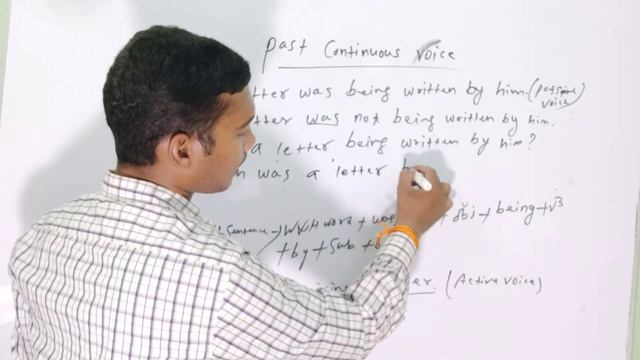 Past Continuous Voice
tter was being written by him. (passive voice)
tter was not being written by him.
a letter being written by him?
n was a letter
Sentence → WH word + was + obj + being + v3
+ by + Sub +
er. (Active voice)